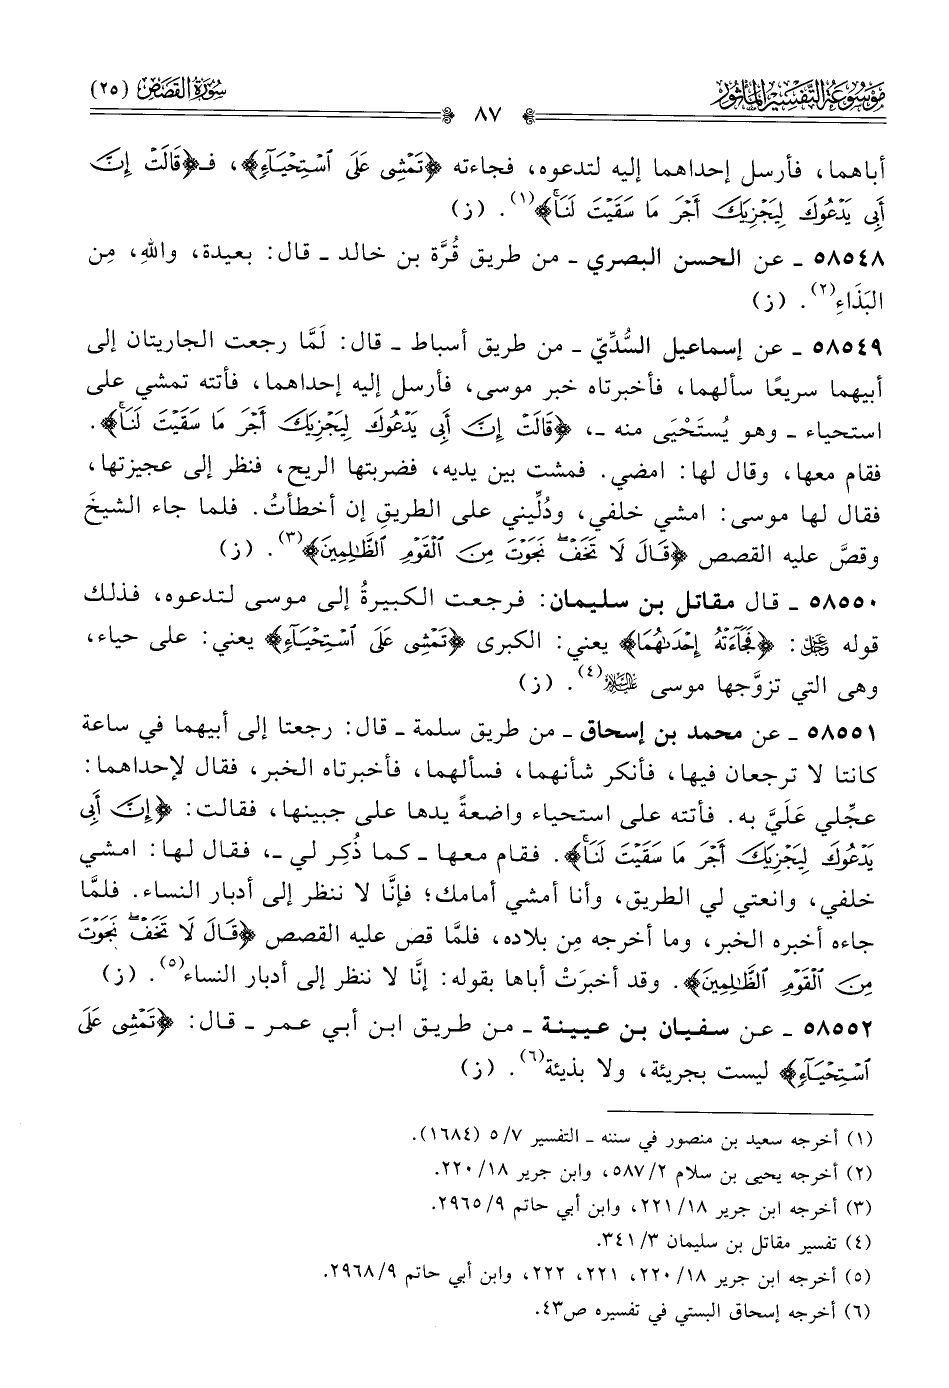 مَوْسُوعَةُ التَّفْسِيْرِ المَأْثُورِ
٨٧
سُورَةُ القَصَصِ (٢٥)
أباهما، فأرسل إحداهما إليه لتدعوه، فجاءته ﴿تَمْشِى عَلَى ٱسْتِحْيَآءٍ﴾، فـ﴿قَالَتْ إِنَّ
أَبِى يَدْعُوكَ لِيَجْزِيَكَ أَجْرَ مَا سَقَيْتَ لَنَا﴾(١). (ز)
٥٨٥٤٨ ـ عن الحسن البصري ـ من طريق قُرَّة بن خالد ـ قال: بعيدة، واللهِ، مِن
البَذَاءِ(٢). (ز)
٥٨٥٤٩ ـ عن إسماعيل السُّدِّيّ ـ من طريق أسباط ـ قال: لَمَّا رجعت الجاريتان إلى
أبيهما سريعًا سألهما، فأخبرتاه خبر موسى، فأرسل إليه إحداهما، فأتته تمشي على
استحياء ـ وهو يُستَحْيَى منه ـ، ﴿قَالَتْ إِنَّ أَبِى يَدْعُوكَ لِيَجْزِيَكَ أَجْرَ مَا سَقَيْتَ لَنَا﴾.
فقام معها، وقال لها: امضي. فمشت بين يديه، فضربتها الريح، فنظر إلى عجيزتها،
فقال لها موسى: امشي خلفي، ودُلِّيني على الطريقِ إن أخطأتُ. فلما جاء الشيخَ
وقصَّ عليه القصص ﴿قَالَ لَا تَخَفْ نَجَوْتَ مِنَ ٱلْقَوْمِ ٱلظَّٰلِمِينَ﴾(٣). (ز)
٥٨٥٥٠ ـ قال مقاتل بن سليمان: فرجعت الكبيرةُ إلى موسى لتدعوه، فذلك
قوله ﷿: ﴿فَجَآءَتْهُ إِحْدَىٰهُمَا﴾ يعني: الكبرى ﴿تَمْشِى عَلَى ٱسْتِحْيَآءٍ﴾ يعني: على حياء،
وهى التي تزوَّجها موسى عليه السلام(٤). (ز)
٥٨٥٥١ ـ عن محمد بن إسحاق ـ من طريق سلمة ـ قال: رجعتا إلى أبيهما في ساعة
كانتا لا ترجعان فيها، فأنكر شأنهما، فسألهما، فأخبرتاه الخبر، فقال لإحداهما:
عجِّلي عَلَيَّ به. فأتته على استحياء واضعةً يدها على جبينها، فقالت: ﴿إِنَّ أَبِى
يَدْعُوكَ لِيَجْزِيَكَ أَجْرَ مَا سَقَيْتَ لَنَا﴾. فقام معها ـ كما ذُكِر لي ـ، فقال لها: امشي
خلفي، وانعتي لي الطريق، وأنا أمشي أمامك؛ فإنَّا لا ننظر إلى أدبار النساء. فلمَّا
جاءه أخبره الخبر، وما أخرجه مِن بلاده، فلمَّا قص عليه القصص ﴿قَالَ لَا تَخَفْ نَجَوْتَ
مِنَ ٱلْقَوْمِ ٱلظَّٰلِمِينَ﴾. وقد أخبرَتْ أباها بقوله: إنَّا لا ننظر إلى أدبار النساء(٥). (ز)
٥٨٥٥٢ ـ عن سفيان بن عيينة ـ من طريق ابن أبي عمر ـ قال: ﴿تَمْشِى عَلَى
ٱسْتِحْيَآءٍ﴾ ليست بجريئة، ولا بذيئة(٦). (ز)
(١) أخرجه سعيد بن منصور في سننه ـ التفسير ٥/٧ (١٦٨٤).
(٢) أخرجه يحيى بن سلام ٥٨٧/٢، وابن جرير ٢٢٠/١٨.
(٣) أخرجه ابن جرير ٢٢١/١٨، وابن أبي حاتم ٢٩٦٥/٩.
(٤) تفسير مقاتل بن سليمان ٣٤١/٣.
(٥) أخرجه ابن جرير ٢٢٠/١٨، ٢٢١، ٢٢٢، وابن أبي حاتم ٢٩٦٨/٩.
(٦) أخرجه إسحاق البستي في تفسيره ص٤٣.